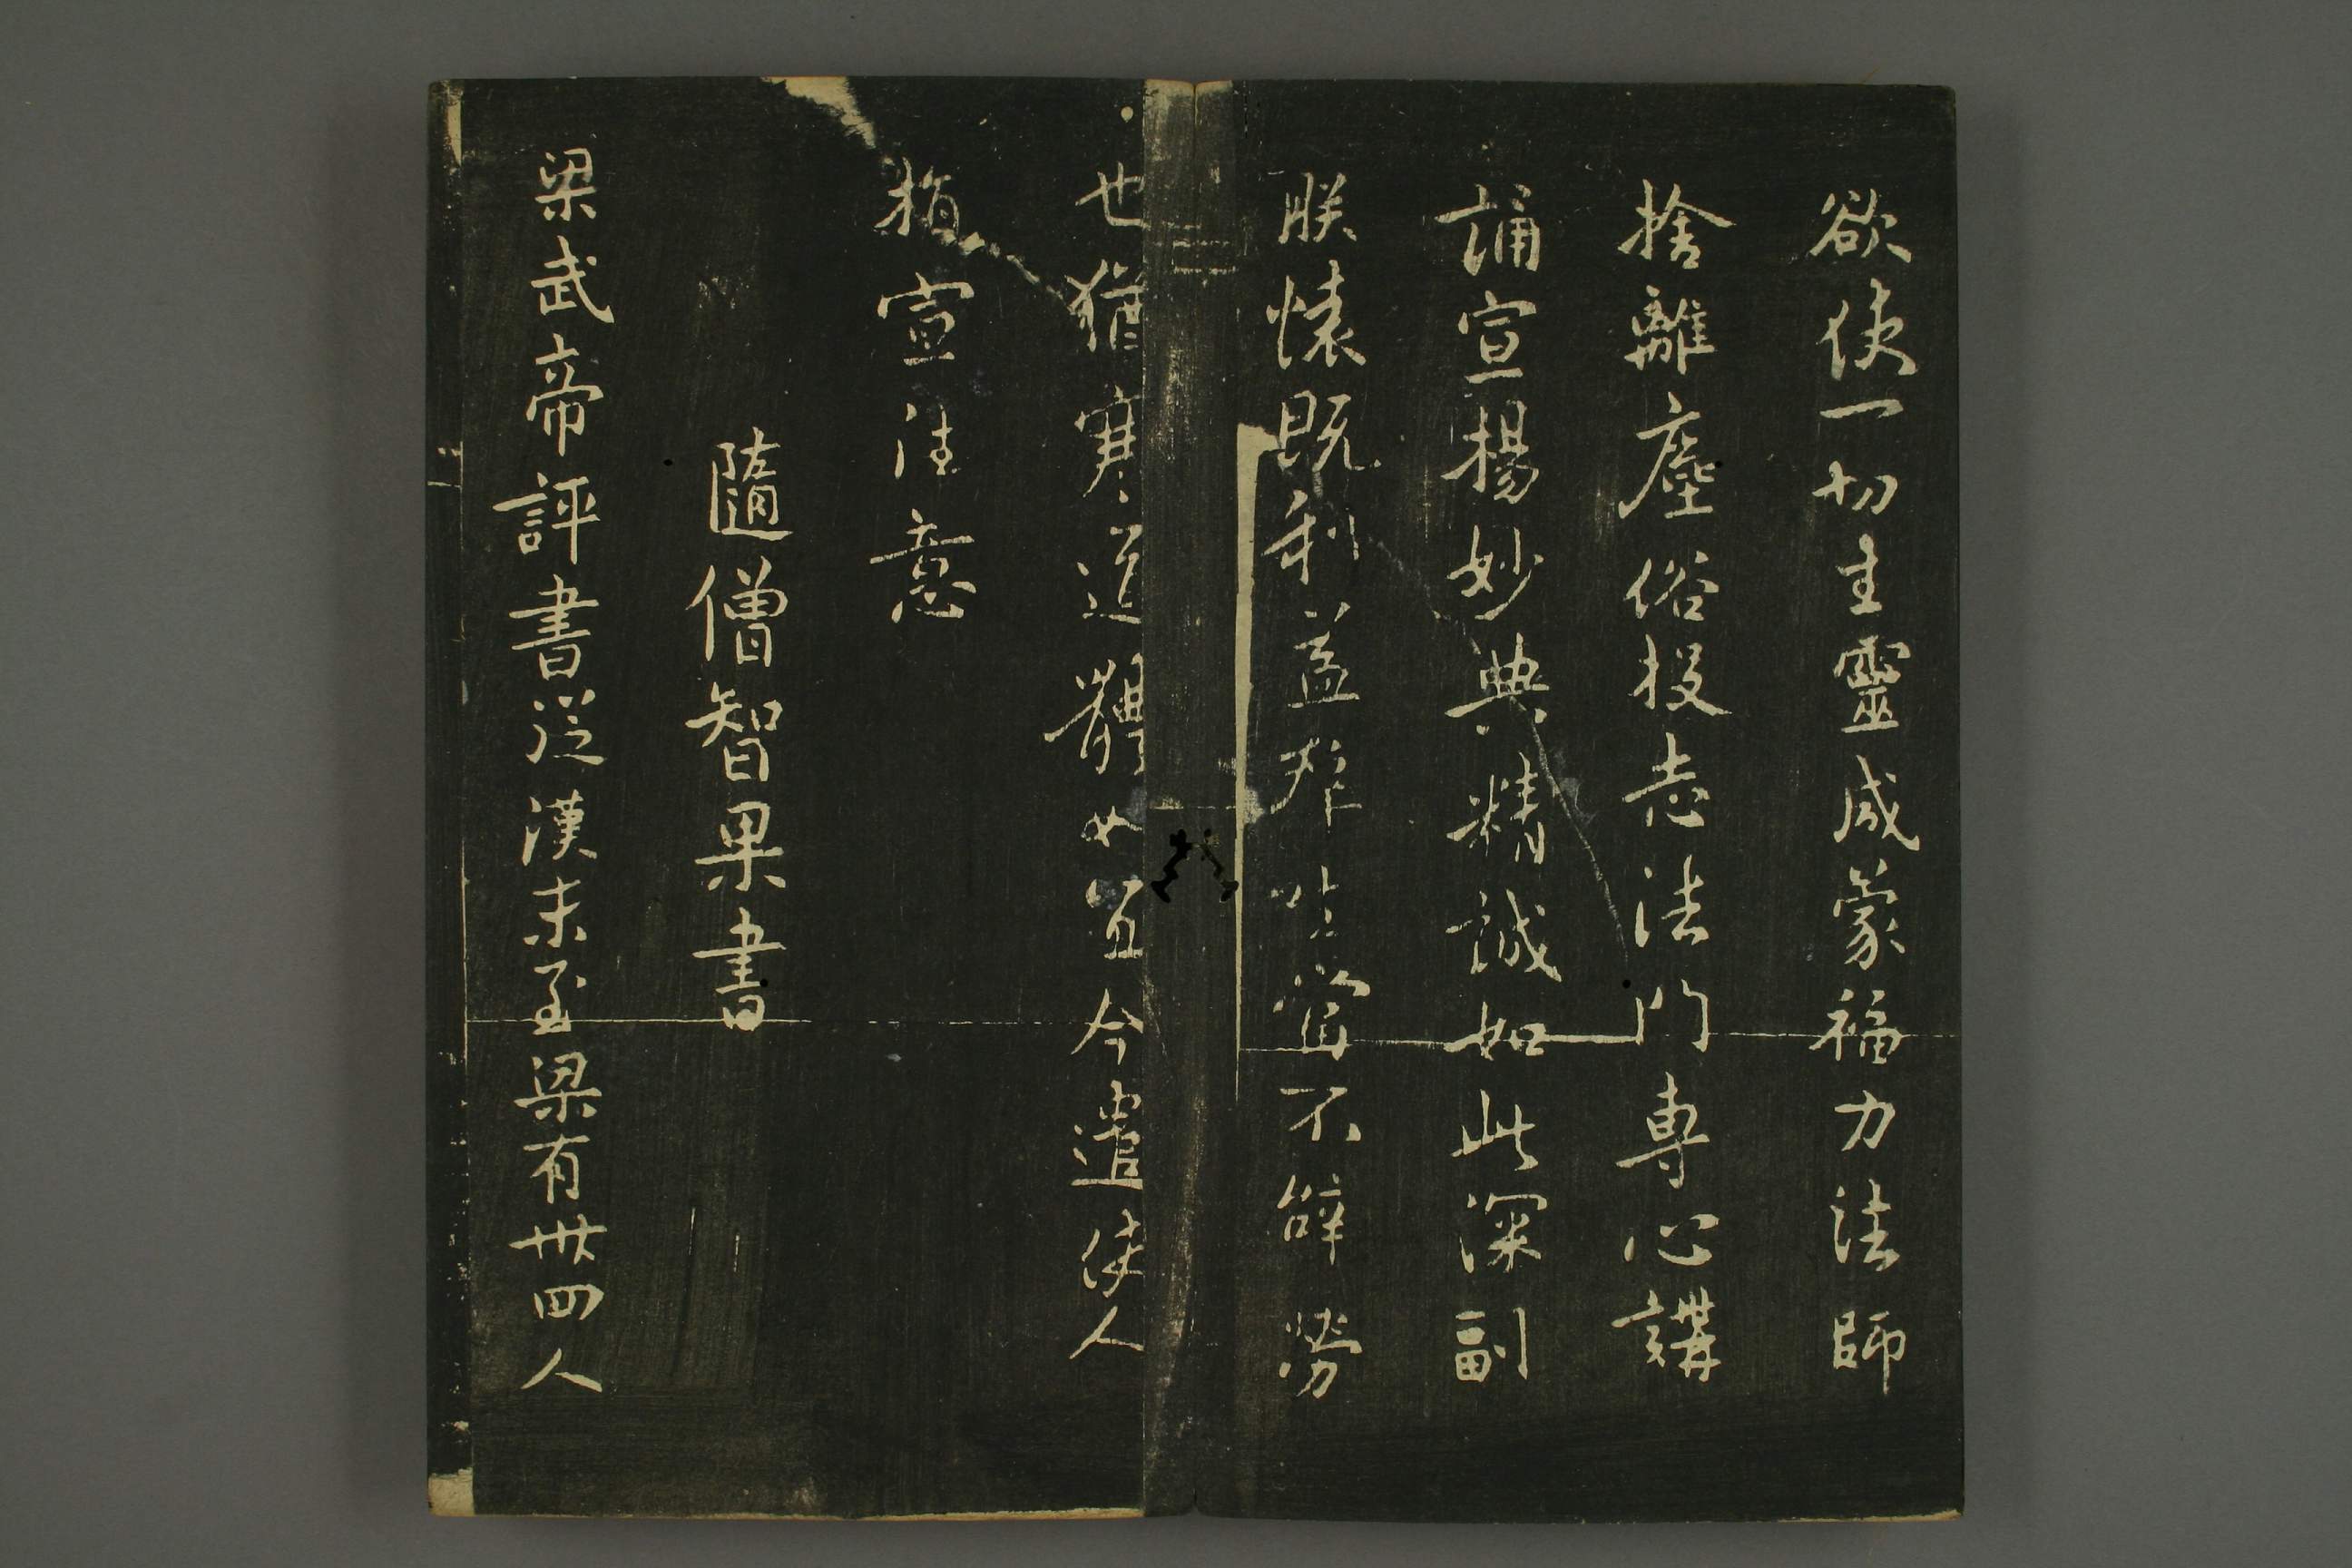 欲使一切生靈咸蒙福力法師
捨離塵俗投志法門專心講
誦宣揚妙典精誠如此深副
朕懷既利益群生當不辭勞
也猶寒道體如宜今遣使人
指宣往意
隨僧智果書
梁武帝評書從漢末至梁有卅四人